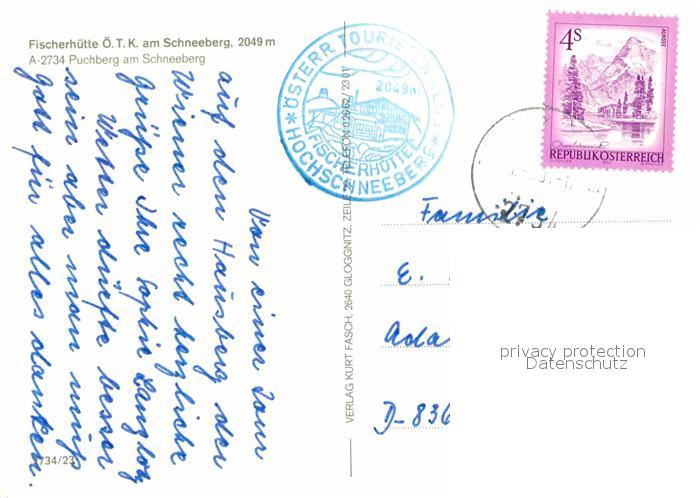 Fischerhütte Ö. T. K. am Schneeberg, 2049 m
A-2734 Puchberg am Schneeberg
Von einer Tour
auf den Hausberg der
Wiener recht herzliche
grüße Ihre Sophie
Wetter dürfte besser
sein aber man muß
gott für alles danken.
734/23
VERLAG KURT FASCH, 2640 GLOGGNITZ, ZEILE TELEFON 02662/2301
ÖSTERR. TOURISTENKLUB
2049m
FISCHERHÜTTE
HOCHSCHNEEBERG
4S
ALMSEE
REPUBLIK ÖSTERREICH
2734
Familie
E.
Ada
D-836
privacy protection
Datenschutz